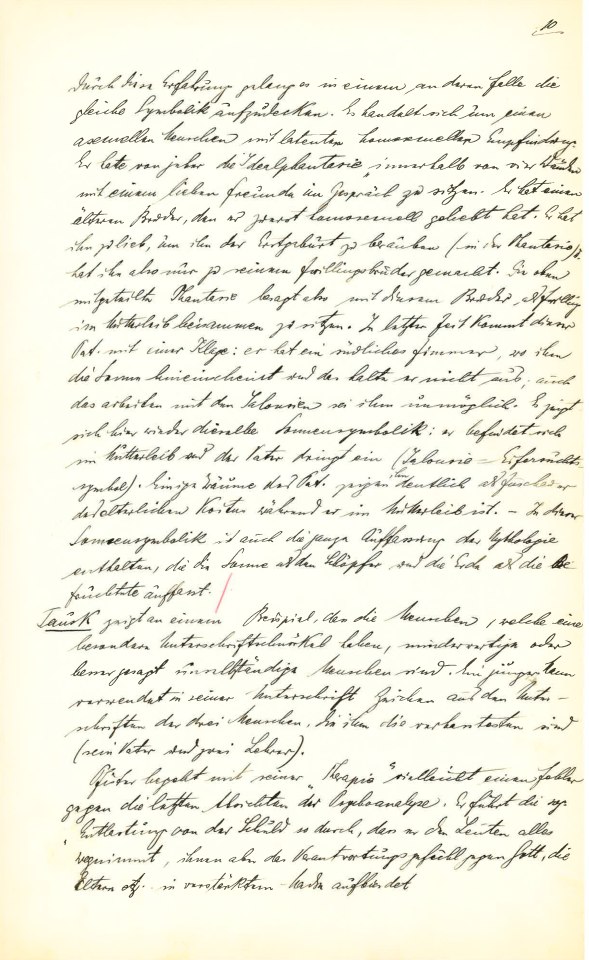 10
Durch diese Erfahrung gelang es in einem anderen Falle die
gleiche Symbolik aufzudecken. Es handelt sich um einen
asexuellen Menschen mit latenten homosexuellen Empfindungen.
Er hatte von jeher die Idealphantasie „innerhalb von vier Wänden
mit einem lieben Freunde im Gespräch zu sitzen. Er hat einen
älteren Bruder, den er zuerst homosexuell geliebt hat. Er hat
ihn zu lieb, um ihn der Erstgeburt zu berauben (in der Phantasie) u.
hat ihn also nur zu seinem Zwillingsbruder gemacht. Die oben
mitgeteilte Phantasie besagt also mit diesem Bruder als Zwilling
im Mutterleib beisammen zu sitzen. In letzter Zeit kommt dieser
Pat. mit einer Klage: er hat ein südliches Zimmer, wo ihm
die Sonne hineinscheint und das halte er nicht aus; auch
das arbeiten mit den Jalousien sei ihm unmöglich. Es zeigt
sich hier wieder dieselbe Sonnensymbolik: er befindet sich
im Mutterleib und der Vater dringt ein (Jalousie = Eifersuchts-
symbol). Einige Träume des Pat. zeigen ihn deutlich als Zuschauer
des elterlichen Koitus während er im Mutterleib ist. – In dieser
Sonnensymbolik ist auch die ganze Auffassung der Mythologie
enthalten, die die Sonne als den Schöpfer und die Erde als die Be-
fruchtete auffasst.
Tausk zeigt an einem Beispiel, dass die Menschen, welche eine
besondere Unterschriftschnörkel haben, minderwertige oder
besser gesagt unselbständige Menschen sind. Ein junger Mann
verwendet in seiner Unterschrift Zeichen aus den Unter-
schriften der drei Menschen, die ihm die verhasstesten sind
(sein Vater und zwei Lehrer).
Pfister begeht mit seiner „Therapie" vielleicht einen Fehler
gegen die letzten Absichten der Psychoanalyse. Er führt die sog.
„Entlastung von der Schuld so durch, dass er den Leuten alles
wegnimmt, ihnen aber das Verantwortungsgefühl gegen Gott, die
Eltern etz. in verstärktem Maße aufbürdet